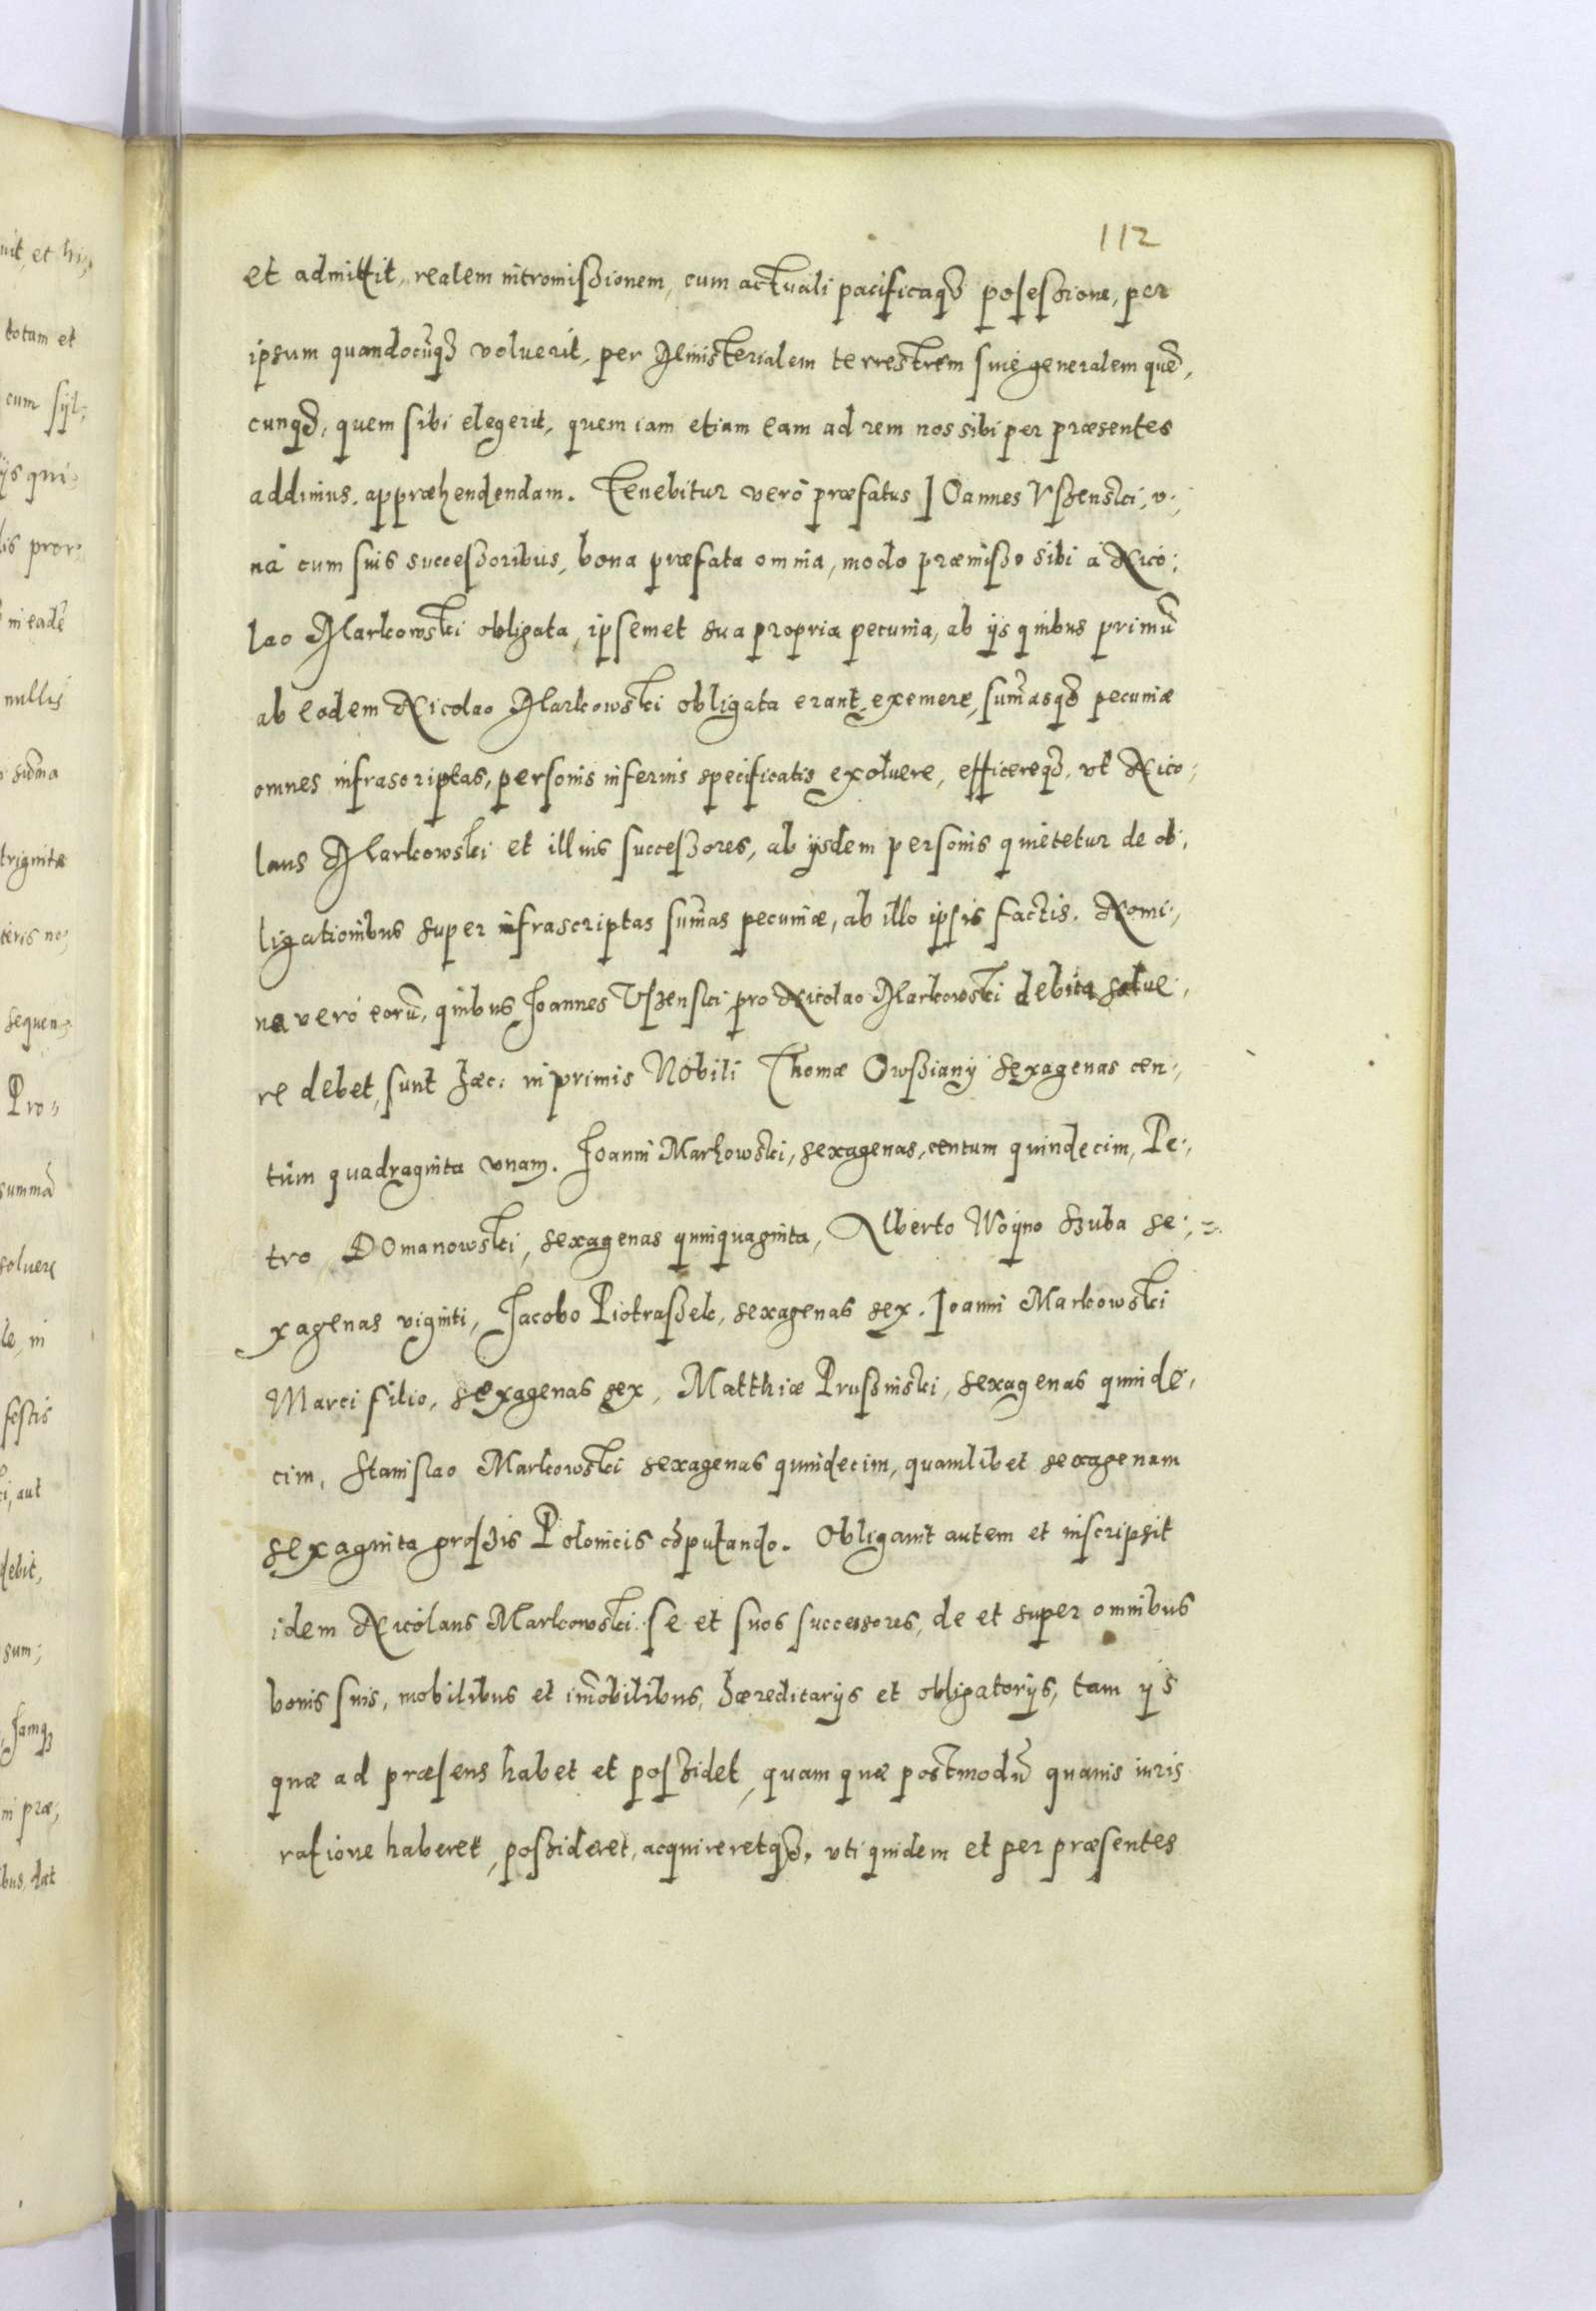 112
et admittit, realem intromißionem, cum actuali pacificaqȝ poseßione, per
ipsum quandocūqȝ voluerit, per Ministerialem terrestrem siue generalem quē,
cunqȝ, quem sibi elegerit, quem iam etiam eam ad rem nos sibi per præsentes
addimus, appræhendendam. Tenebitur verò præfatus IOannes Vßenski, v-,
nà cum suis succeßoribus, bona præfata omnia, modo præmißo sibi à Nico-
lao Markowski obligata, ipsemet sua propria pecunia, ab ijs quibus primū
ab eodem Nicolao Markowski obligata erant, exemere, sum̄asqȝ pecuniæ
omnes infrascriptas, personis inferius specificatis exoluere, efficereqȝ, vt Nico-
laus Markowski et illius succeßores, ab ijsdem personis quietetur de ob-,
ligationibus super infrascriptas sum̄as pecuniæ, ab illo ipsis factis. Nomi-,
na verò eorū, quibus Joannes Vßenski pro Nicolao Markowski debita solue-,
re debet, sunt hæc: inprimis Nobili Thomæ Owßiany sexagenas cen-,
tùm quadraginta vnam. Joanni Markowski, sexagenas, centum quindecim, Pe-,
tro DOmanowski, sexagenas quinquaginta, Alberto Woyno Szuba se-,
xagenas viginti, Jacobo Piotraßek, sexagenas sex. Joanni Markowski
Marci filio, sexagenas sex, Matthiæ Prußinski, sexagenas quinde-,
cim, Stanislao Markowski sexagenas quindecim, quamlibet sexagenam
sexaginta großis Polonicis cōputando. Obligauit autem et inscripsit
idem Nicolaus Markowski se et suos successores, de et super omnibus
bonis suis, mobilibus et im̄obilibus, hæreditarijs et obligatorijs, tam ijs
quæ ad præsens habet et poßidet, quam quæ postmodū quauis iuris
ratione haberet, poßideret, acquireretqȝ, vti quidem et per præsentes